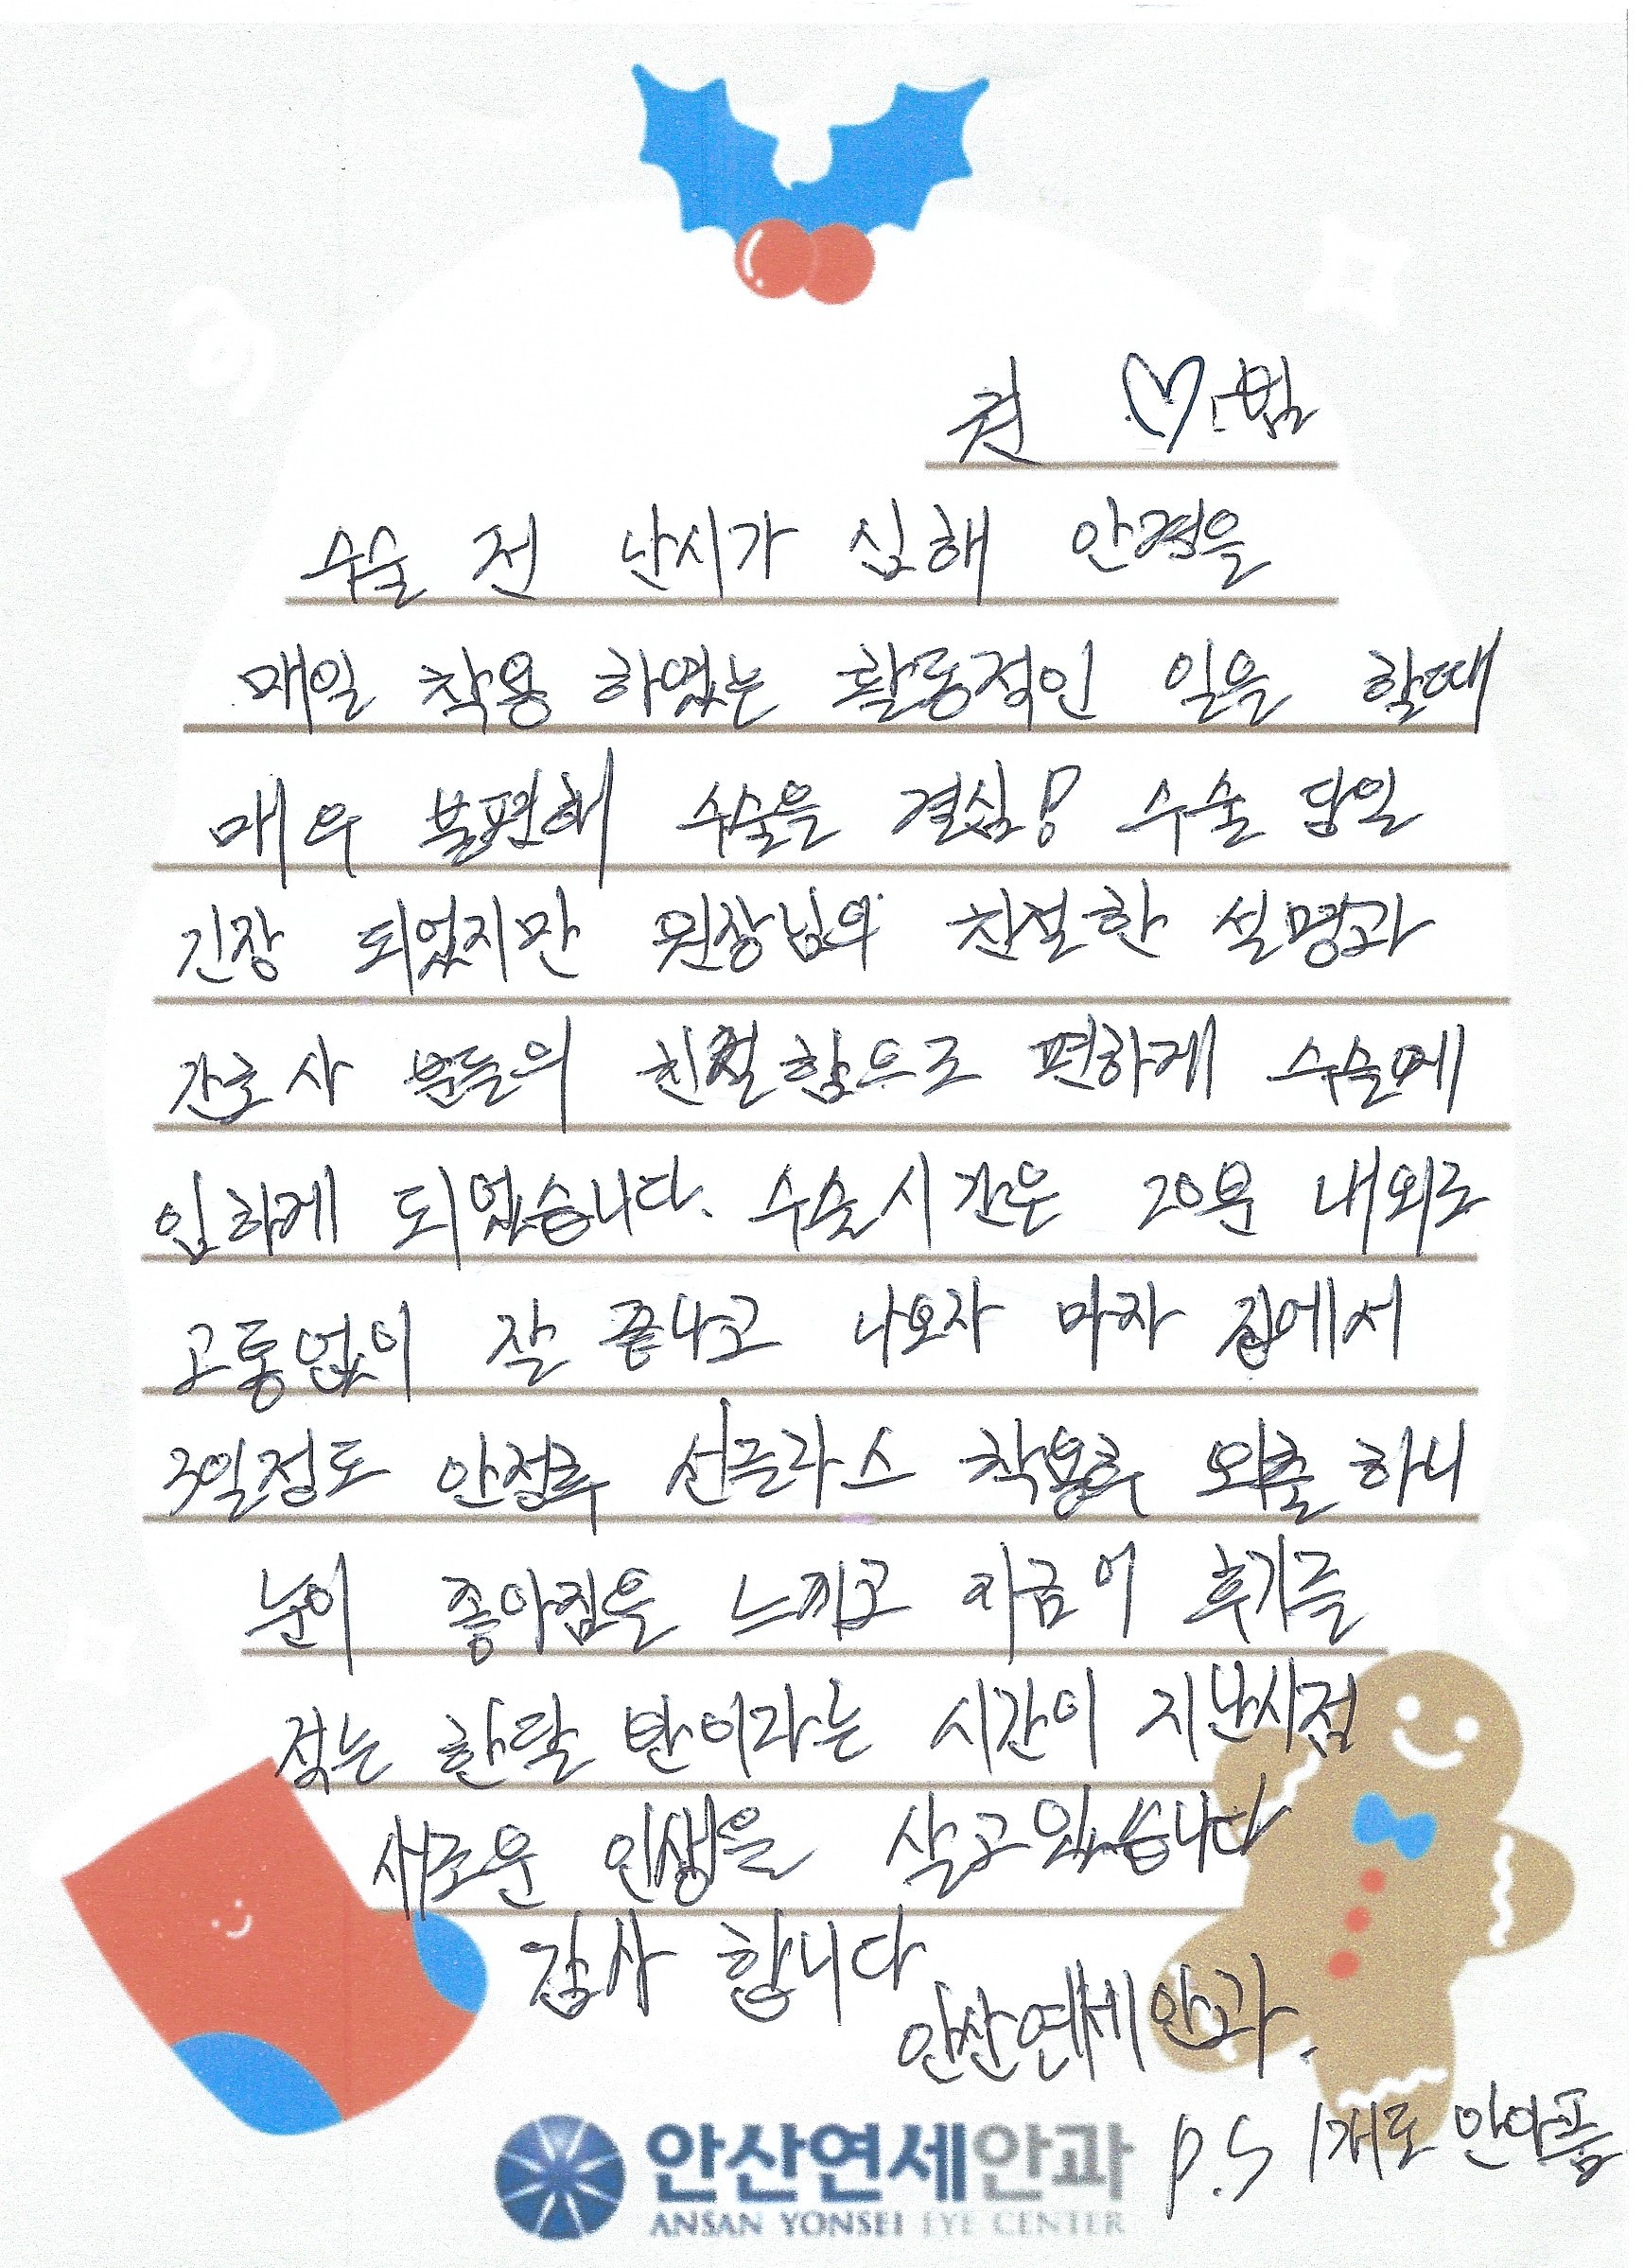 권 ♡범
수술 전 난시가 심해 안경을
매일 착용 하였는 활동적인 일을 할때
매우 불편해 수술을 결심! 수술 당일
긴장 되었지만 원장님의 친절한 설명과
간호사 분들의 친절함으로 편하게 수술에
임하게 되었습니다. 수술시간은 20분 내외로
고통없이 잘 끝나고 나오자 마자 집에서
3일정도 안정후 선글라스 착용후 외출 하니
눈이 좋아짐을 느끼고 지금 이 후기를
적는 한달 반이라는 시간이 지난시점
새로운 인생을 살고있습니다
감사 합니다
안산연세안과.
P.S 1개도 안아픔
안산연세안과
ANSAN YONSEI EYE CENTER